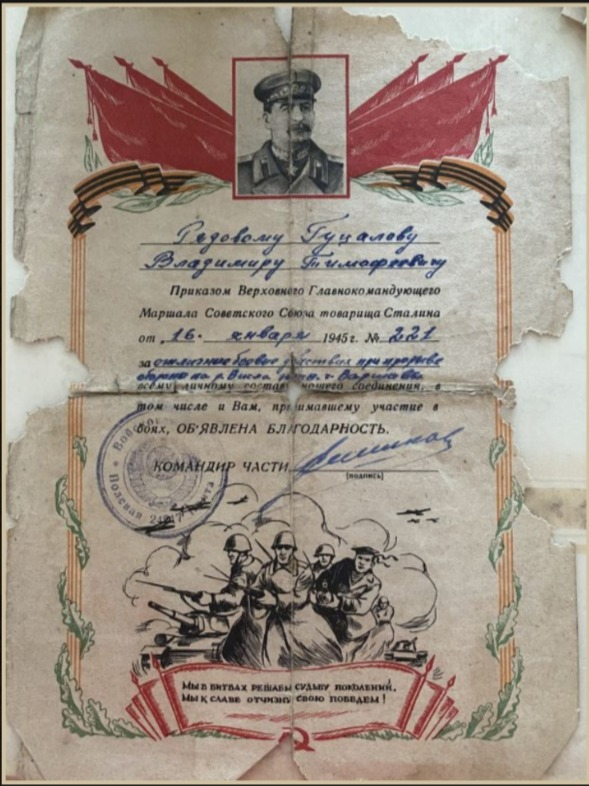 Рядовому Гуцалову
Владимиру Тимофеевичу
Приказом Верховного Главнокомандующего
Маршала Советского Союза товарища Сталина
от „16. января 1945 г. № 221
за отличные боевые действия при прорыве
обороны на р. Висла г. Варшава
всему личному состав нашего соединения, в
том числе и Вам, принимавшему участие в
боях, ОБ'ЯВЛЕНА БЛАГОДАРНОСТЬ.
КОМАНДИР ЧАСТИ
(подпись)
Полевая
МЫ В БИТВАХ РЕШАЕМ СУДЬБУ ПОКОЛЕНИЙ,
МЫ К СЛАВЕ ОТЧИЗНУ СВОЮ ПОВЕДЕМ!